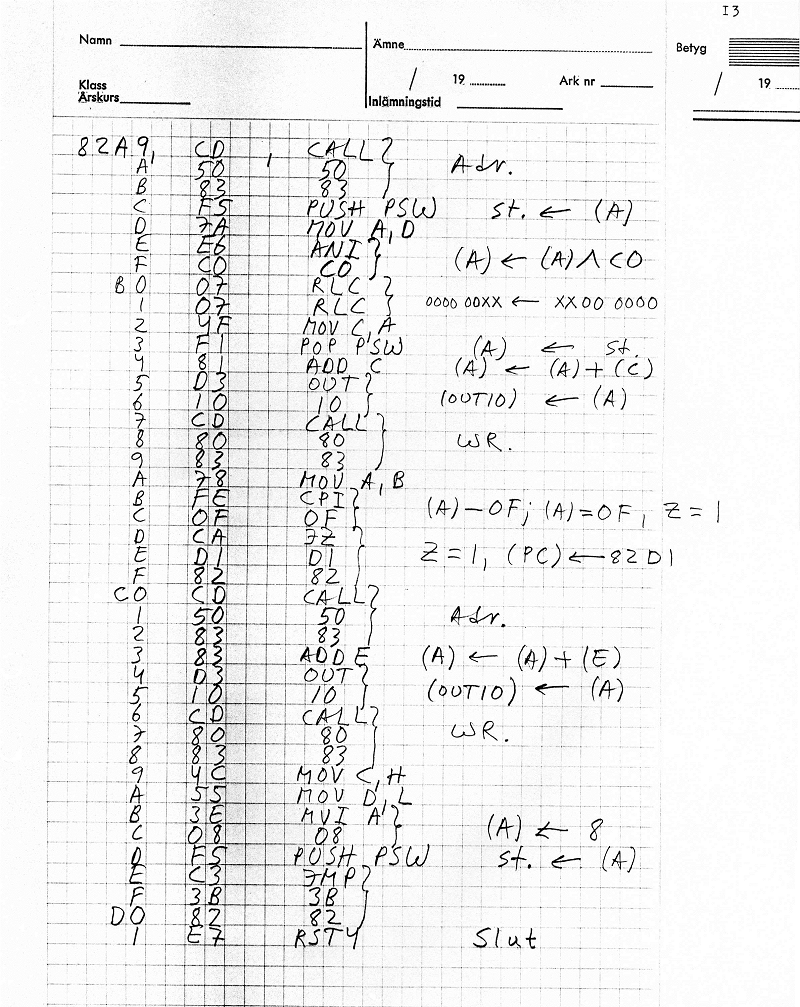 I3
Namn Ämne Betyg
/ 19 Ark nr / 19
Klass
Årskurs Inlämningstid
82A9, CD , CALL } Adr.
A 50 50
B 83 83
C F5 PUSH PSW st. ← (A)
D 7A MOV A,D
E E6 ANI } (A) ← (A) ∧ C0
F C0 C0
B0 07 RLC }
1 07 RLC 0000 00XX ← XX00 0000
2 4F MOV C,A
3 F1 POP PSW (A) ← st.
4 81 ADD C (A) ← (A) + (C)
5 D3 OUT }
6 10 10 (OUT10) ← (A)
7 CD CALL }
8 80 80 WR.
9 83 83
A 78 MOV A,B
B FE CPI }
C 0F 0F (A) – 0F; (A) = 0F, Z = 1
D CA JZ }
E D1 D1 Z = 1, (PC) ← 82D1
F 82 82
C0 CD CALL }
1 50 50 Adr.
2 83 83
3 83 ADD E (A) ← (A) + (E)
4 D3 OUT }
5 10 10 (OUT10) ← (A)
6 CD CALL }
7 80 80 WR.
8 83 83
9 4C MOV C,H
A 55 MOV D,L
B 3E MVI A }
C 08 08 (A) ← 8
D F5 PUSH PSW st. ← (A)
E C3 JMP }
F 3B 3B
D0 82 82
1 E7 RST4 Slut